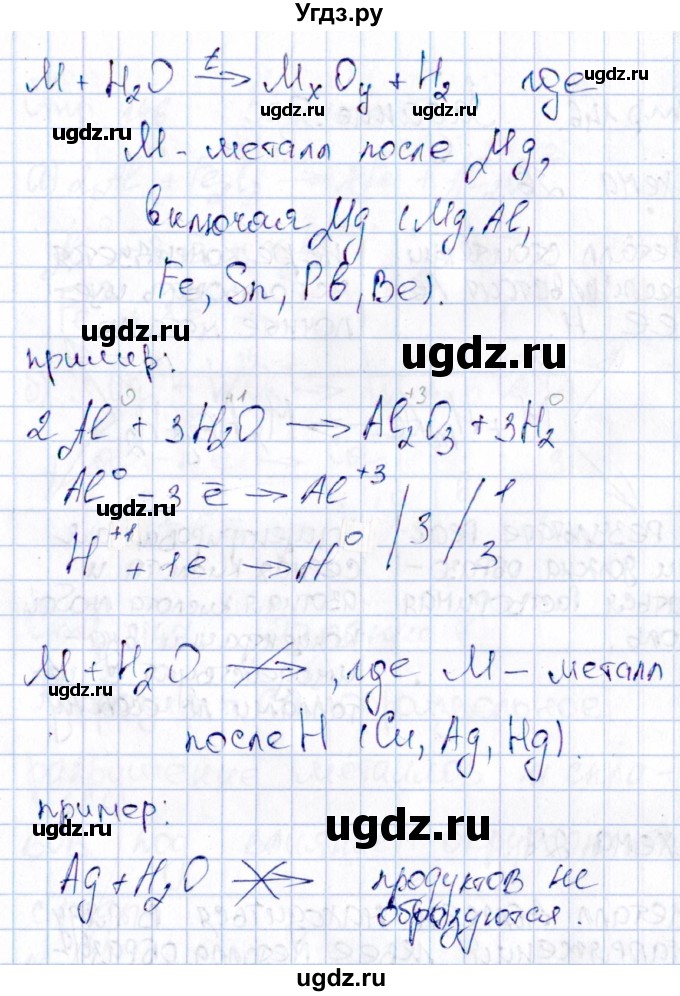 Угдз.ру
M + H₂O →ᵗ MₓOᵧ + H₂, где
ugdz.ru ugdz.ru ugdz.ru
ugdz.ru
M - металл после Mg,
включая Mg (Mg, Al,
Fe, Sn, Pb, Be).
ugdz.ru
ugdz.ru
пример:
2Al⁰ + 3H₂⁺¹O → Al₂⁺³O₃ + 3H₂⁰
Al⁰ - 3ē → Al⁺³ / 3 / 1
ugdz.ru
H⁺¹ + 1ē → H⁰ 3
M + H₂O ↛ , где M - металл
ugdz.ru
после H (Cu, Ag, Hg).
пример:
ugdz.ru
ugdz.ru
Ag + H₂O ↛ продуктов не
образуются.
ugdz.ru
ugdz.ru